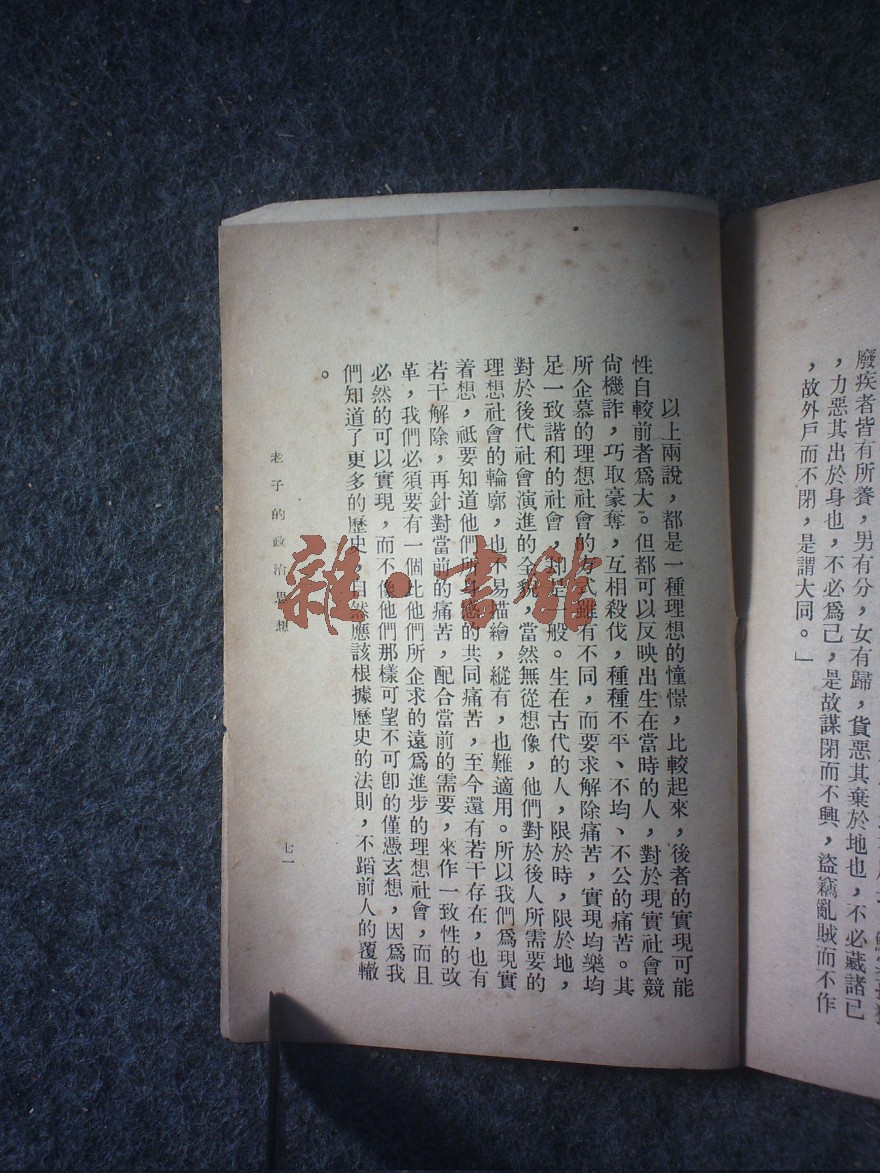 廢疾者皆有所養，男有分，女有歸，貨惡其棄於地也，不必藏諸己
，力惡其出於身也，不必爲己，是故謀閉而不興，盜竊亂賊而不作
，故外戶而不閉，是謂大同。」
以上兩說，都是一種理想的憧憬，比較起來，後者的實現可能
性自較前者爲大。但都可以反映出生在當時的人，對於現實社會競
尙機詐，巧取豪奪，互相殺伐，種種不平、不均、不公的痛苦。其
所企慕的理想社會的方式雖有不同，而要求解除痛苦，實現均樂均
足一致諧和的社會，則是一般。生在古代的人，限於時，限於地，
對於後代社會演進的全貌，當然無從想像，他們對於後人所需要的
理想社會的輪廓，也不易描繪，縱有，也難適用。所以我們爲現實
着想，祗要知道他們所身感的共同痛苦，至今還有若干存在，也有
若干解除，再針對當前的痛苦，配合當前的需要，來作一致性的改
革，我們必須要有一個比他們所企求的遠爲進步的理想社會，而且
必然的可以實現，而不像他們那樣可望不可卽的僅憑玄想，因爲我
們知道了更多的歷史，自然應該根據歷史的法則，不蹈前人的覆轍
。
老子的政治思想
七一
雜·書館